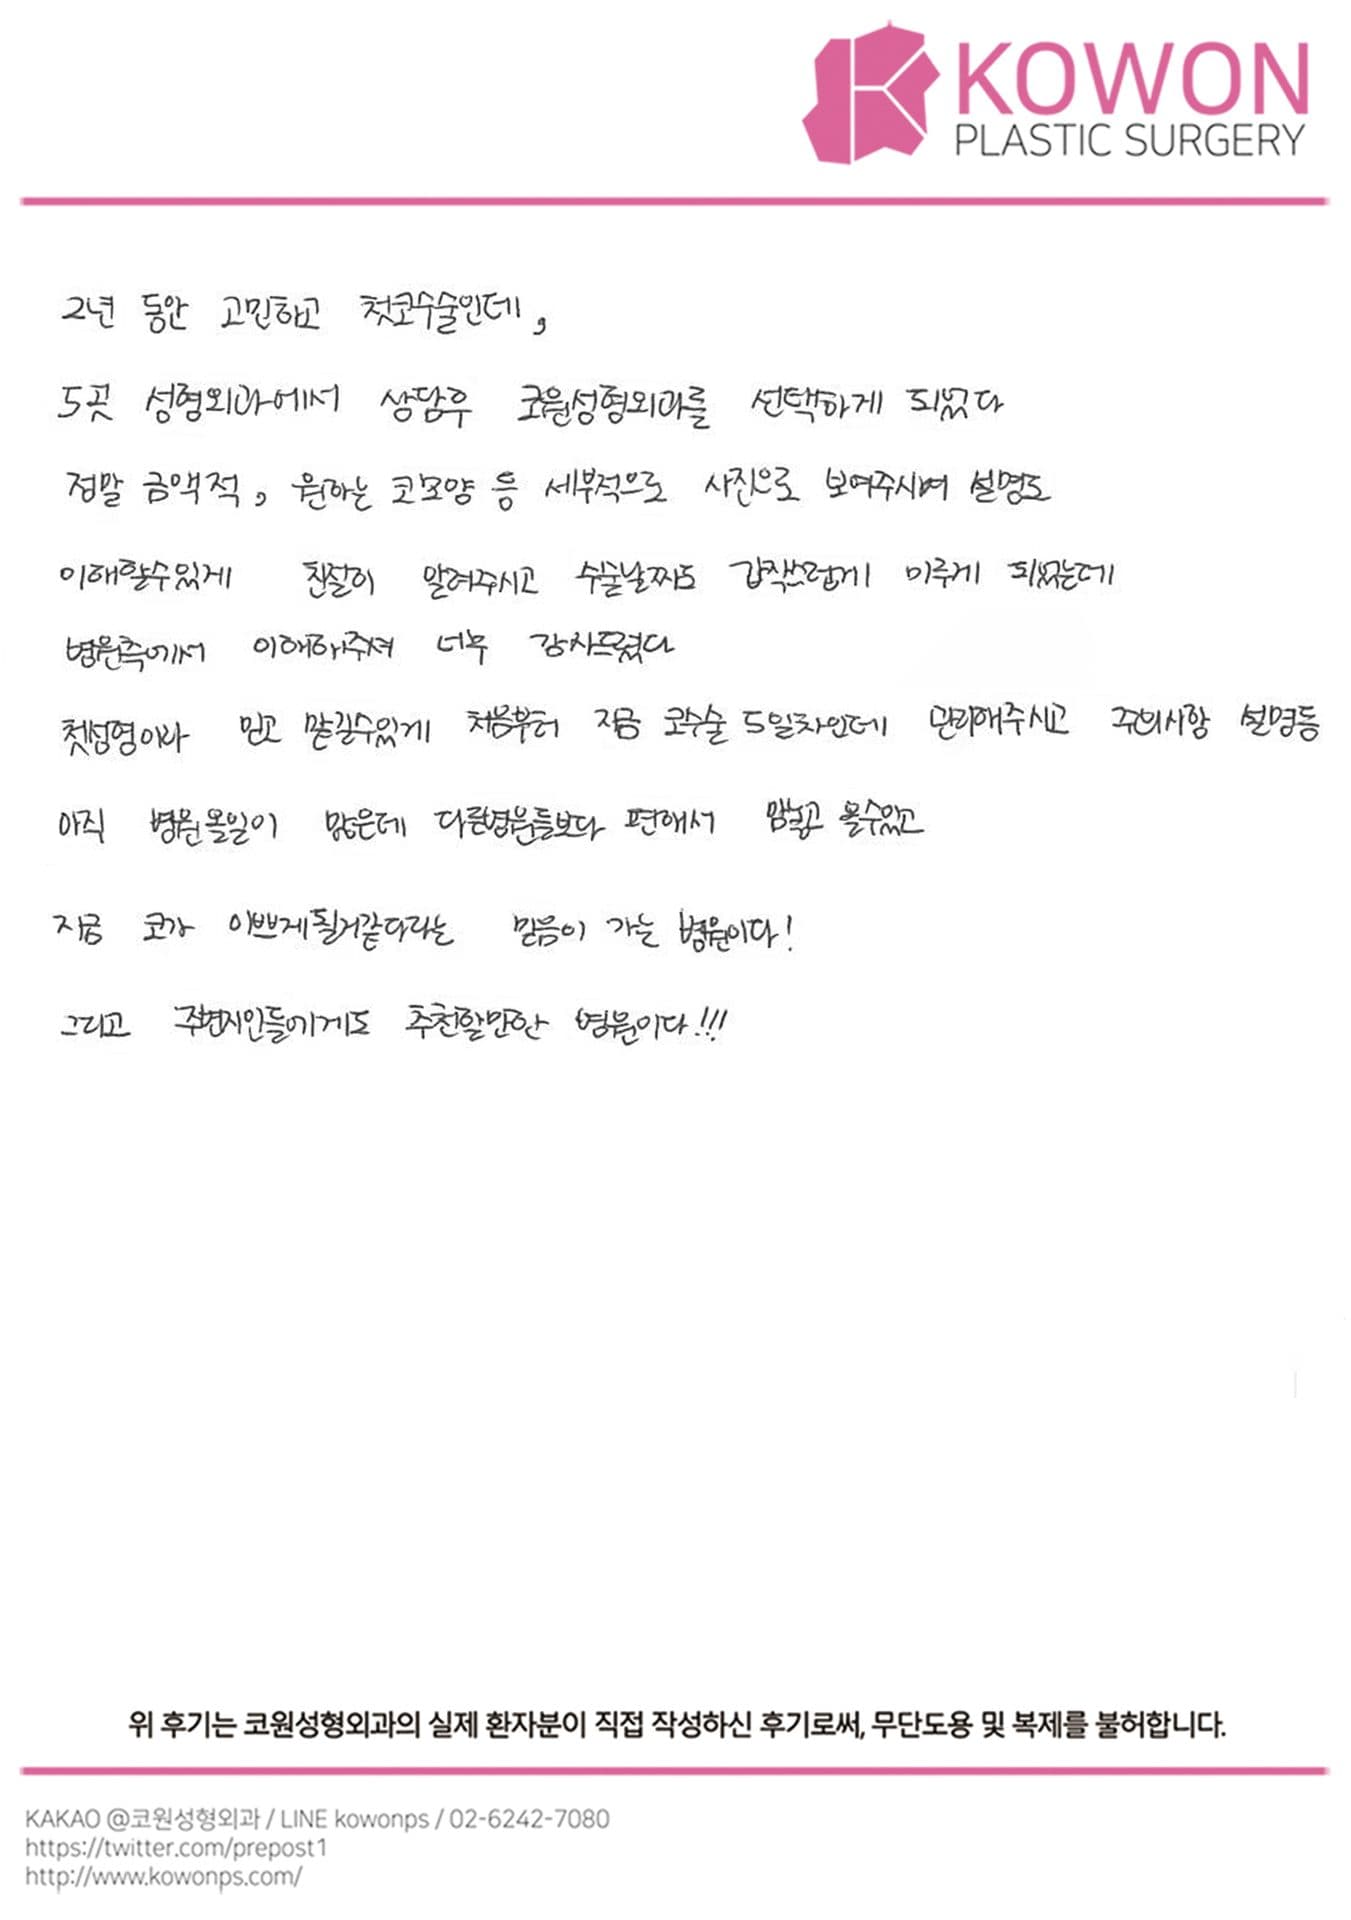 KOWON
PLASTIC SURGERY
2년 동안 고민하고 첫코수술인데,
5곳 성형외과에서 상담후 코원성형외과를 선택하게 되었다
정말 금액적, 원하는 코모양 등 세부적으로 사진으로 보여주시며 설명도
이해할수있게 친절히 알려주시고 수술날짜도 갑작스럽게 미루게 되었는데
병원측에서 이해해주셔 너무 감사드렸다
첫성형이라 믿고 맡길수있게 처음부터 지금 코수술 5일차인데 관리해주시고 주의사항 설명등
아직 병원올일이 많은데 다른병원들보다 편해서 맘놓고 올수있고
지금 코가 이쁘게될거같다라는 믿음이 가는 병원이다!
그리고 주변지인들에게도 추천할만한 병원이다!!!
위 후기는 코원성형외과의 실제 환자분이 직접 작성하신 후기로써, 무단도용 및 복제를 불허합니다.
KAKAO @코원성형외과 / LINE kowonps / 02-6242-7080
https://twitter.com/prepost1
http://www.kowonps.com/